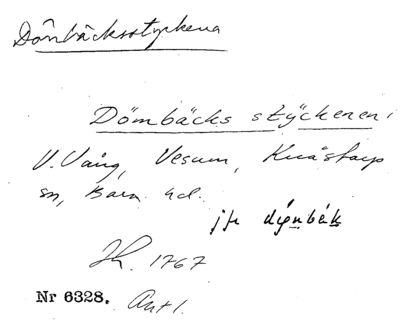 Dömbäcksstyckena
Dömbäcks stÿckenen,
V. Vång, Vesum, Knästorp
sn, Bara hd.
jfr dömbäk
Sk. 1767
Nr 6328. Ant 1.